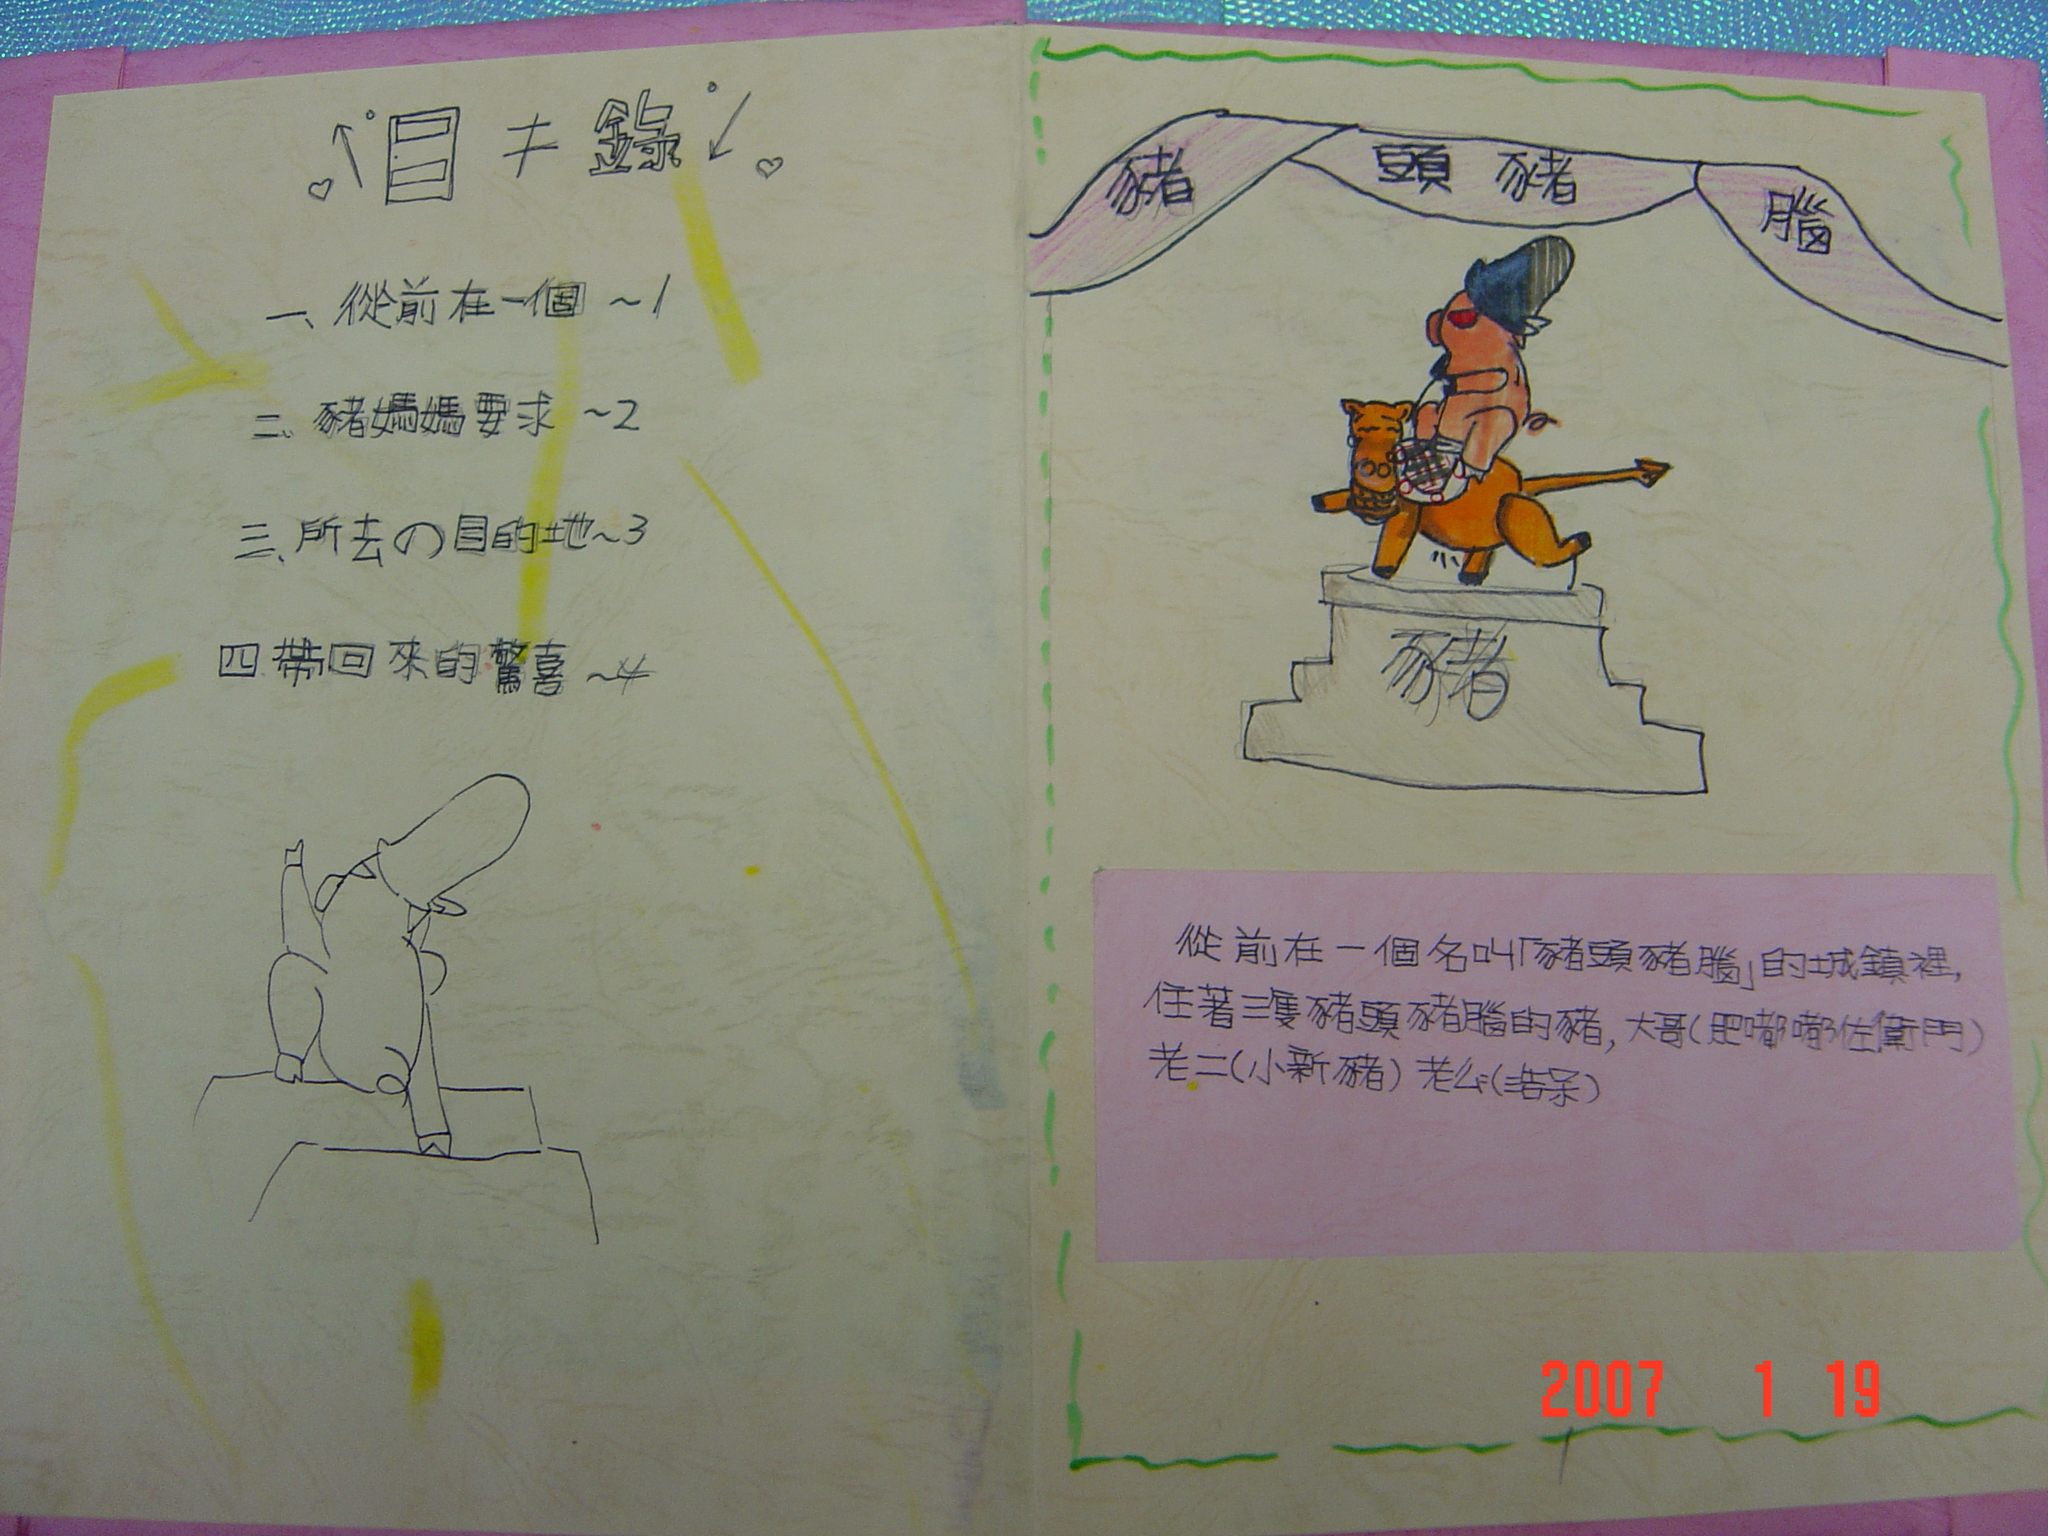 目錄
一、從前在一個 ~1
二、豬媽媽要求 ~2
三、所去の目的地~3
四帶回來的驚喜 ~4
豬頭豬腦
豬
從前在一個名叫「豬頭豬腦」的城鎮裡,
住著三隻豬頭豬腦的豬,大哥(肥嘟嘟佐衛門)
老二(小新豬)老么(浩呆)
1
2007 1 19